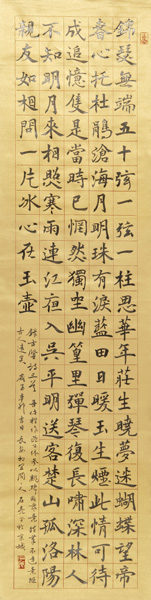 錦瑟無端五十弦一弦一柱思華年莊生曉夢迷蝴蝶望帝
春心托杜鵑滄海月明珠有淚藍田日暖玉生煙此情可待
成追憶隻是當時已惘然獨坐幽篁里彈琴復長嘯深林人
不知明月來相照寒雨連江夜入吳平明送客楚山孤洛陽
親友如相問一片冰心在玉壺